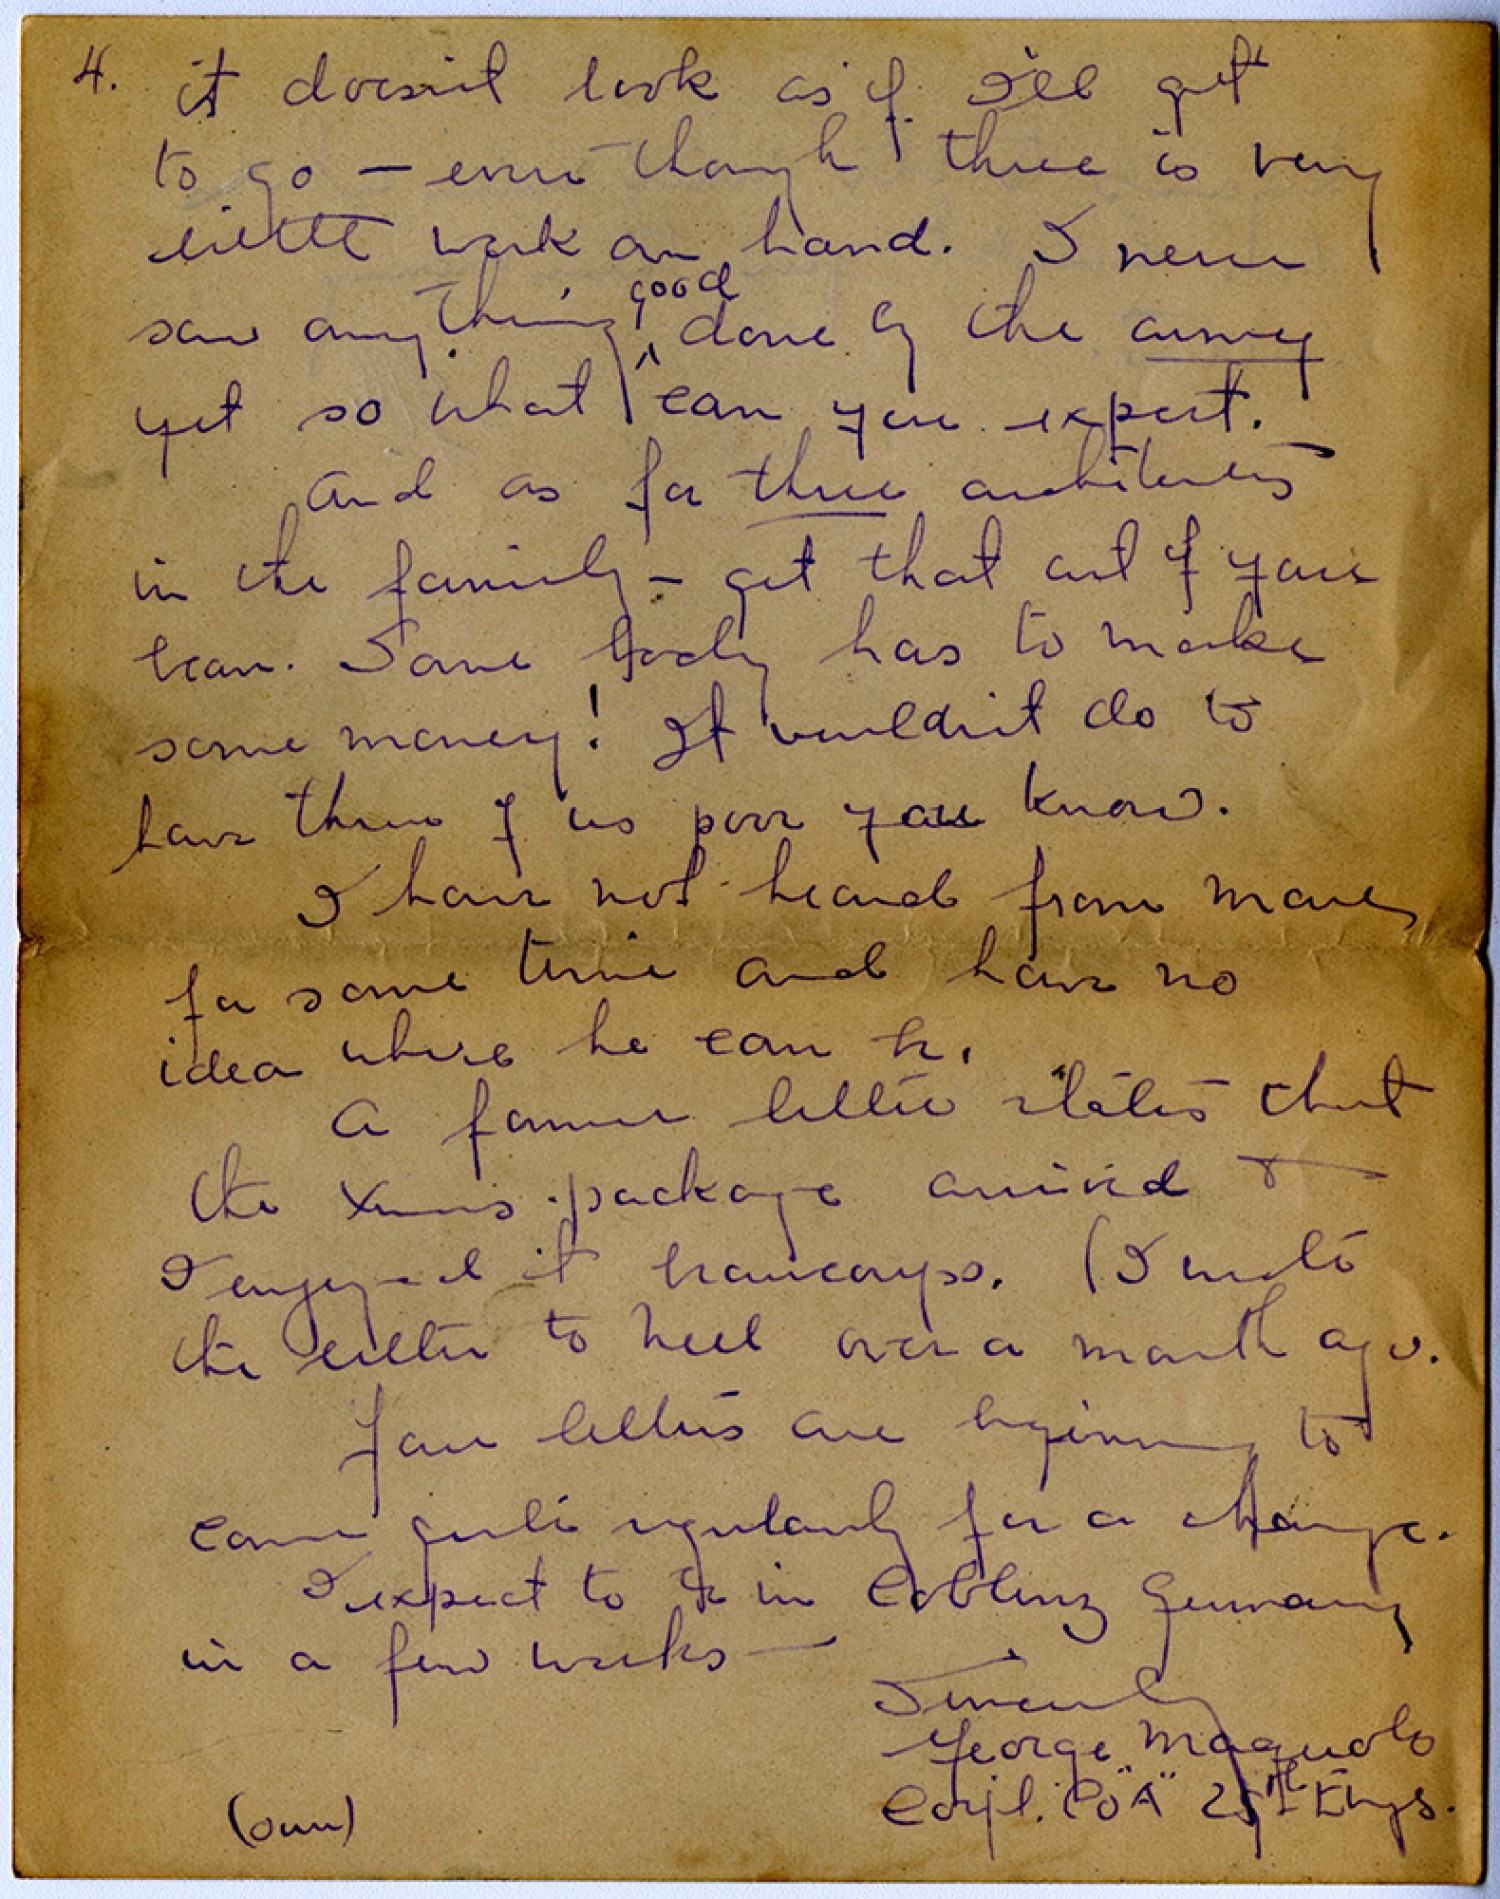 4. it doesn't look as if I'll get
to go – even though there is very
little work on hand. I never
saw anything good done by the army
yet so what can you expect.
And as for three architects
in the family – get that out of your
bean. Some body has to make
some money! It wouldn't do to
have three of us poor you know.
I have not heard from Marey
for some time and have no
idea where he can be.
A former letter states that
the Xmas package arrived &
I enjoyed it. (I wrote
the letter to Nell over a month ago.
Your letters are beginning to
come quite regularly for a change.
I expect to be in Coblenz Germany
in a few weeks —
Sincerely
George Magnolo
Corpl. Co "A" 25th Engs.
(over)